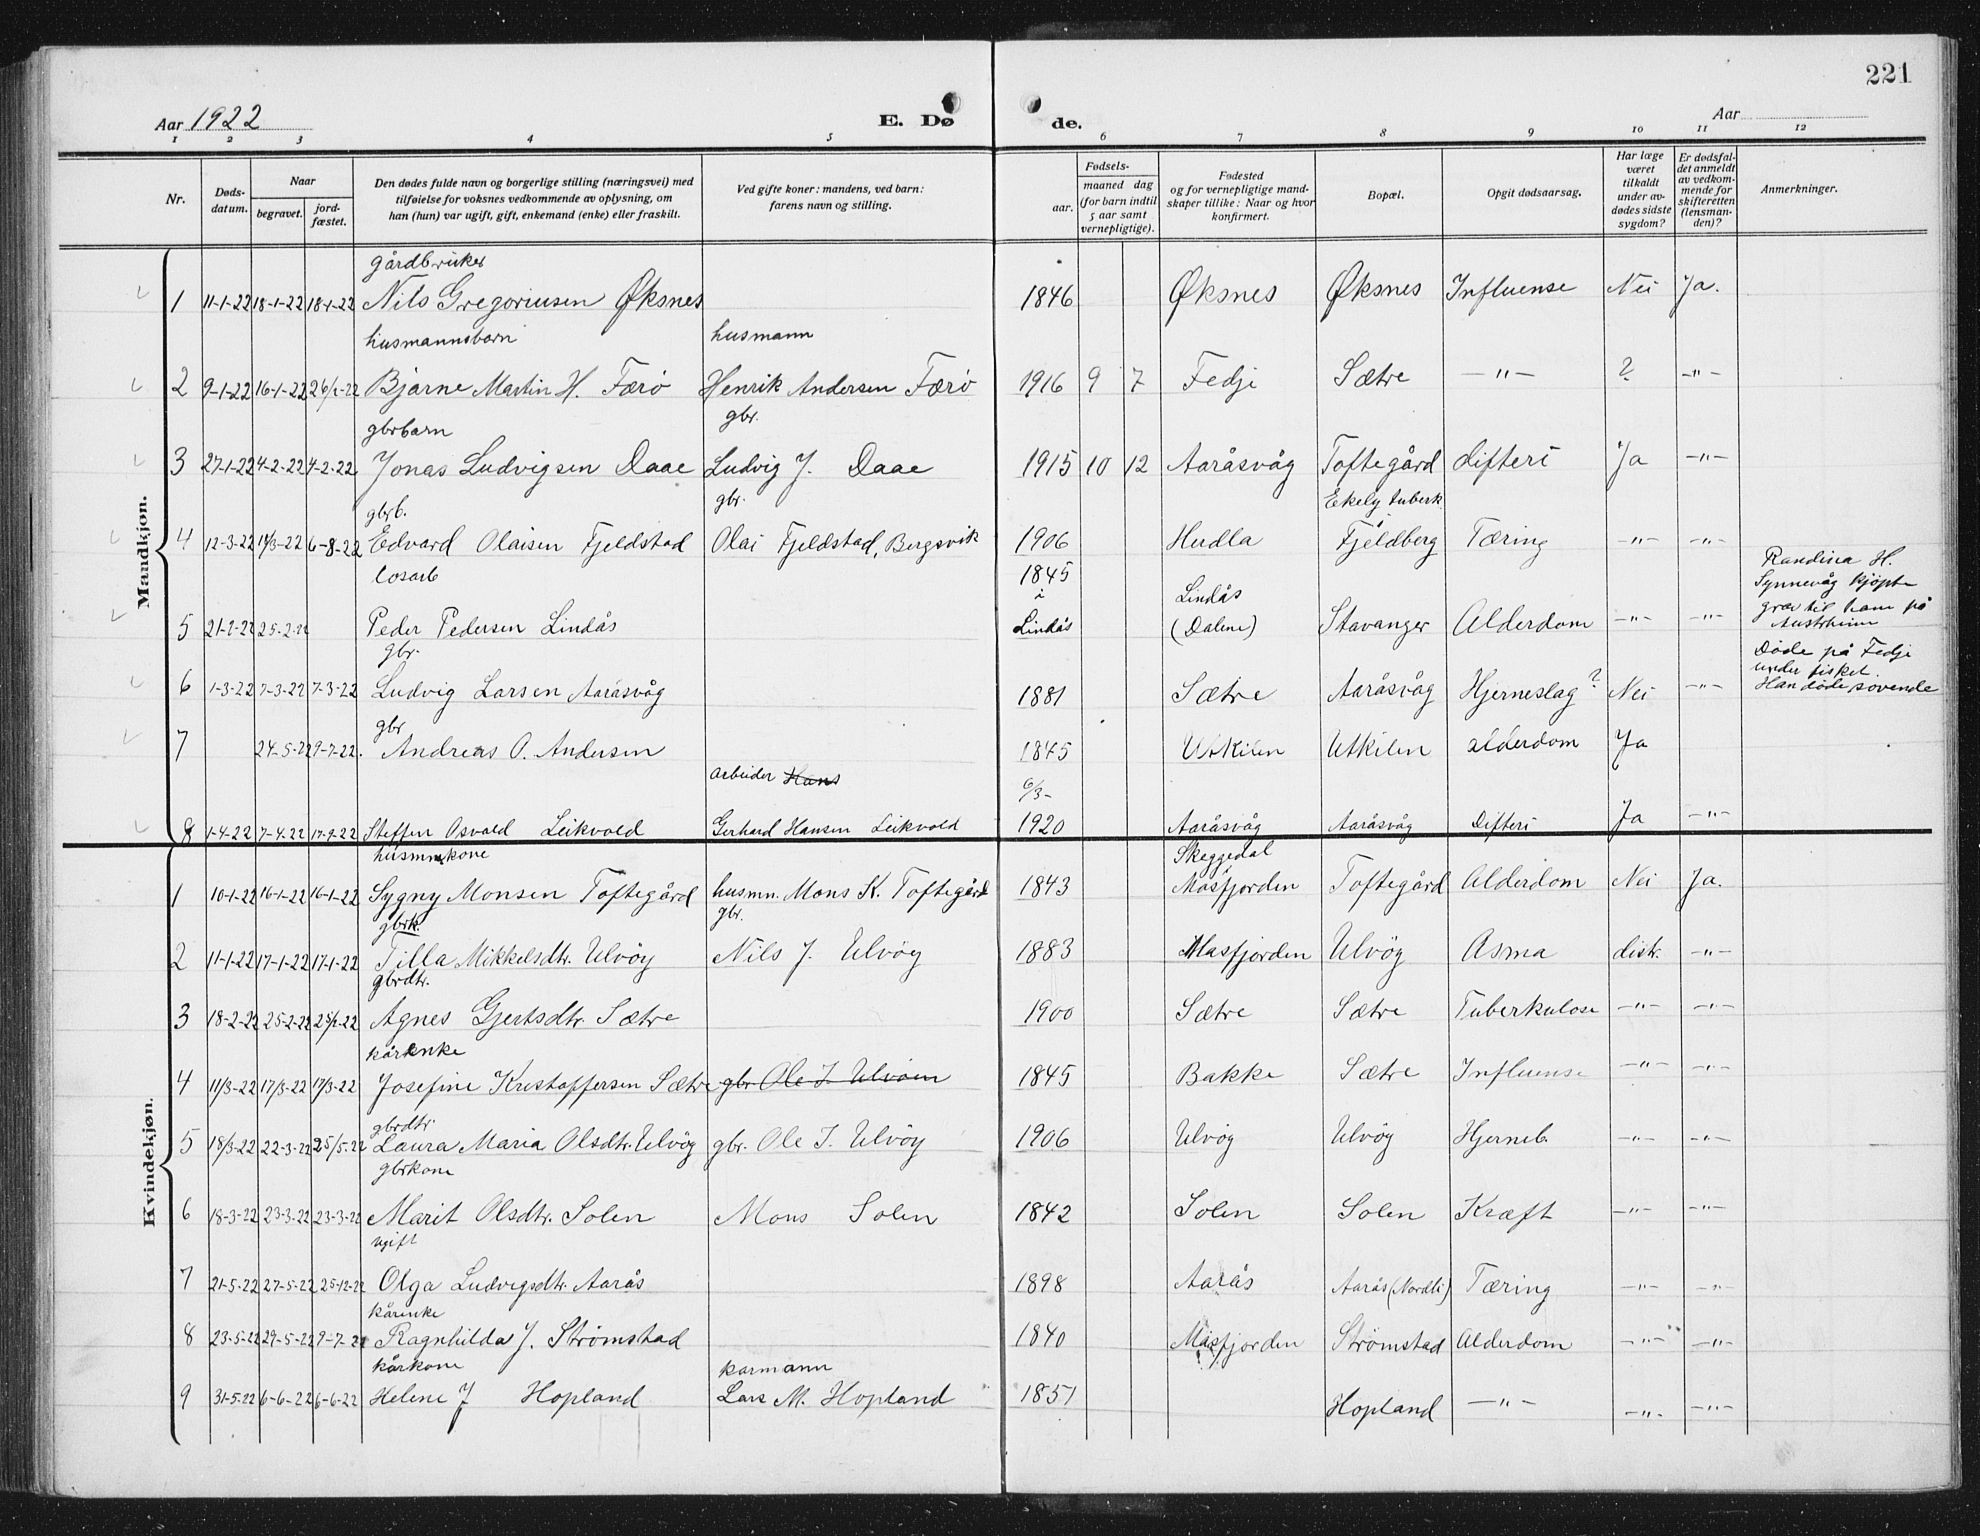 221
Aar 1922
E. Dø
de.
Aar
1 2 3 4 5 6 7 8 9 10 11 12
Nr.
Døds-
datum.
Naar
begravet.
jord-
fæstet.
Den dødes fulde navn og borgerlige stilling (næringsvei) med
tilføielse for voksnes vedkommende av oplysning, om
han (hun) var ugift, gift, enkemand (enke) eller fraskilt.
Ved gifte koner: mandens, ved barn:
farens navn og stilling.
Fødsels-
aar.
maaned dag
(for barn indtil
5 aar samt
vernepligtige).
Fødested
og for vernepligtige mand-
skaper tillike: Naar og hvor
konfirmert.
Bopæl.
Opgit dødsaarsag.
Har læge
været
tilkaldt
under av-
dødes sidste
sygdom?
Er dødsfal-
det anmeldt
av vedkom-
mende for
skifteretten
(lensman-
den)?
Anmerkninger.
Mandkjøn.
gårdbruker
1 11-1-22 18-1-22 18-1-22 Nils Gregoriusen Øksnes 1846 Øksnes Øksnes Influense Nei Ja.
husmannsbarn husmann
2 9-1-22 16-1-22 26/2-22 Bjarne Martin H. Færö Henrik Andersen Færö 1916 9 7 Fedje Sætre -"- ? -"-
gbrbarn gbr.
3 27-1-22 4-2-22 4-2-22 Jonas Ludvigsen Daae Ludvig J. Daae 1915 10 12 Aaråsvåg Toftegård difteri Ja -"-
gbrb. gbr. Ekely tuberk.
4 12-3-22 17/3-22 6-8-22 Edvard Olaisen Fjeldstad Olai Fjeldstad, Bergsvik 1906 Herdla Fjeldberg Tæring -"- -"-
losarb 1845 i Lindås
5 21-2-22 25-2-22 Peder Pedersen Lindås Lindås (Dalene) Stavanger Alderdom -"- -"- Randina H.
Synnevåg kjöpte
grav til ham på
Austrheim
gbr.
6 1-3-22 7-3-22 7-3-22 Ludvig Larsen Aaråsvåg 1881 Sætre Aaråsvåg Hjerneslag? Nei -"- Döde på Fedje
under fisket.
Han döde sovende
gbr
7 24-5-22 9-7-22. Andreas O. Andersen 1845 Utkilen Utkilen alderdom Ja
arbeider Hans 6/3-
8 1-4-22 7-4-22 17-9-22 Steffen Osvald Leikvold Gerhard Hansen Leikvold 1920 Aaråsvåg Aaråsvåg Difteri Ja -"-
Kvindekjøn.
husmnkone Skeggedal
1 10-1-22 16-1-22 16-1-22 Sygny Monsen Toftegård husmn. Mons K. Toftegård 1843 Masfjorden Toftegård Alderdom Nei Ja.
gbrk. gbr.
2 11-1-22 17-1-22 17-1-22 Tilla Mikkelsdtr. Ulvöy Nils J. Ulvöy 1883 Masfjorden Ulvöy Asma distr. -"-
gbrdtr.
3 18-2-22 25-2-22 25/2-22 Agnes Gjertsdtr. Sætre 1900 Sætre Sætre Tuberkulose -"- -"-
kårenke
4 11/3-22 17/3-22 17/3-22 Josefine Kristoffersen Sætre gbr Ole I. Ulvöen 1845 Bakke Sætre Influense -"- -"-
gbrdtr.
5 18/3-22 22-3-22 25/5-22 Laura Maria Olsdtr. Ulvöy gbr. Ole I. Ulvöy 1906 Ulvöy Ulvöy Hjerneb. -"- -"-
gbrkone
6 18-3-22 23-3-22 23-3-22 Marit Olsdtr. Solen Mons Solen 1842 Solen Solen Kræft -"- -"-
ugift
7 21-5-22 27-5-22 25-12-22 Olga Ludvigsdtr. Aarås 1898 Aarås Aarås (Nordli) Tæring -"- -"-
kårenke
8 23-5-22 29-5-22 9-7-22 Ragnhilda J. Strömstad 1840 Masfjorden Strömstad Alderdom -"- -"-
kårkone karmann
9 31-5-22 6-6-22 6-6-22 Helene J Hopland Lars M. Hopland 1851 Hopland -"- -"- -"-